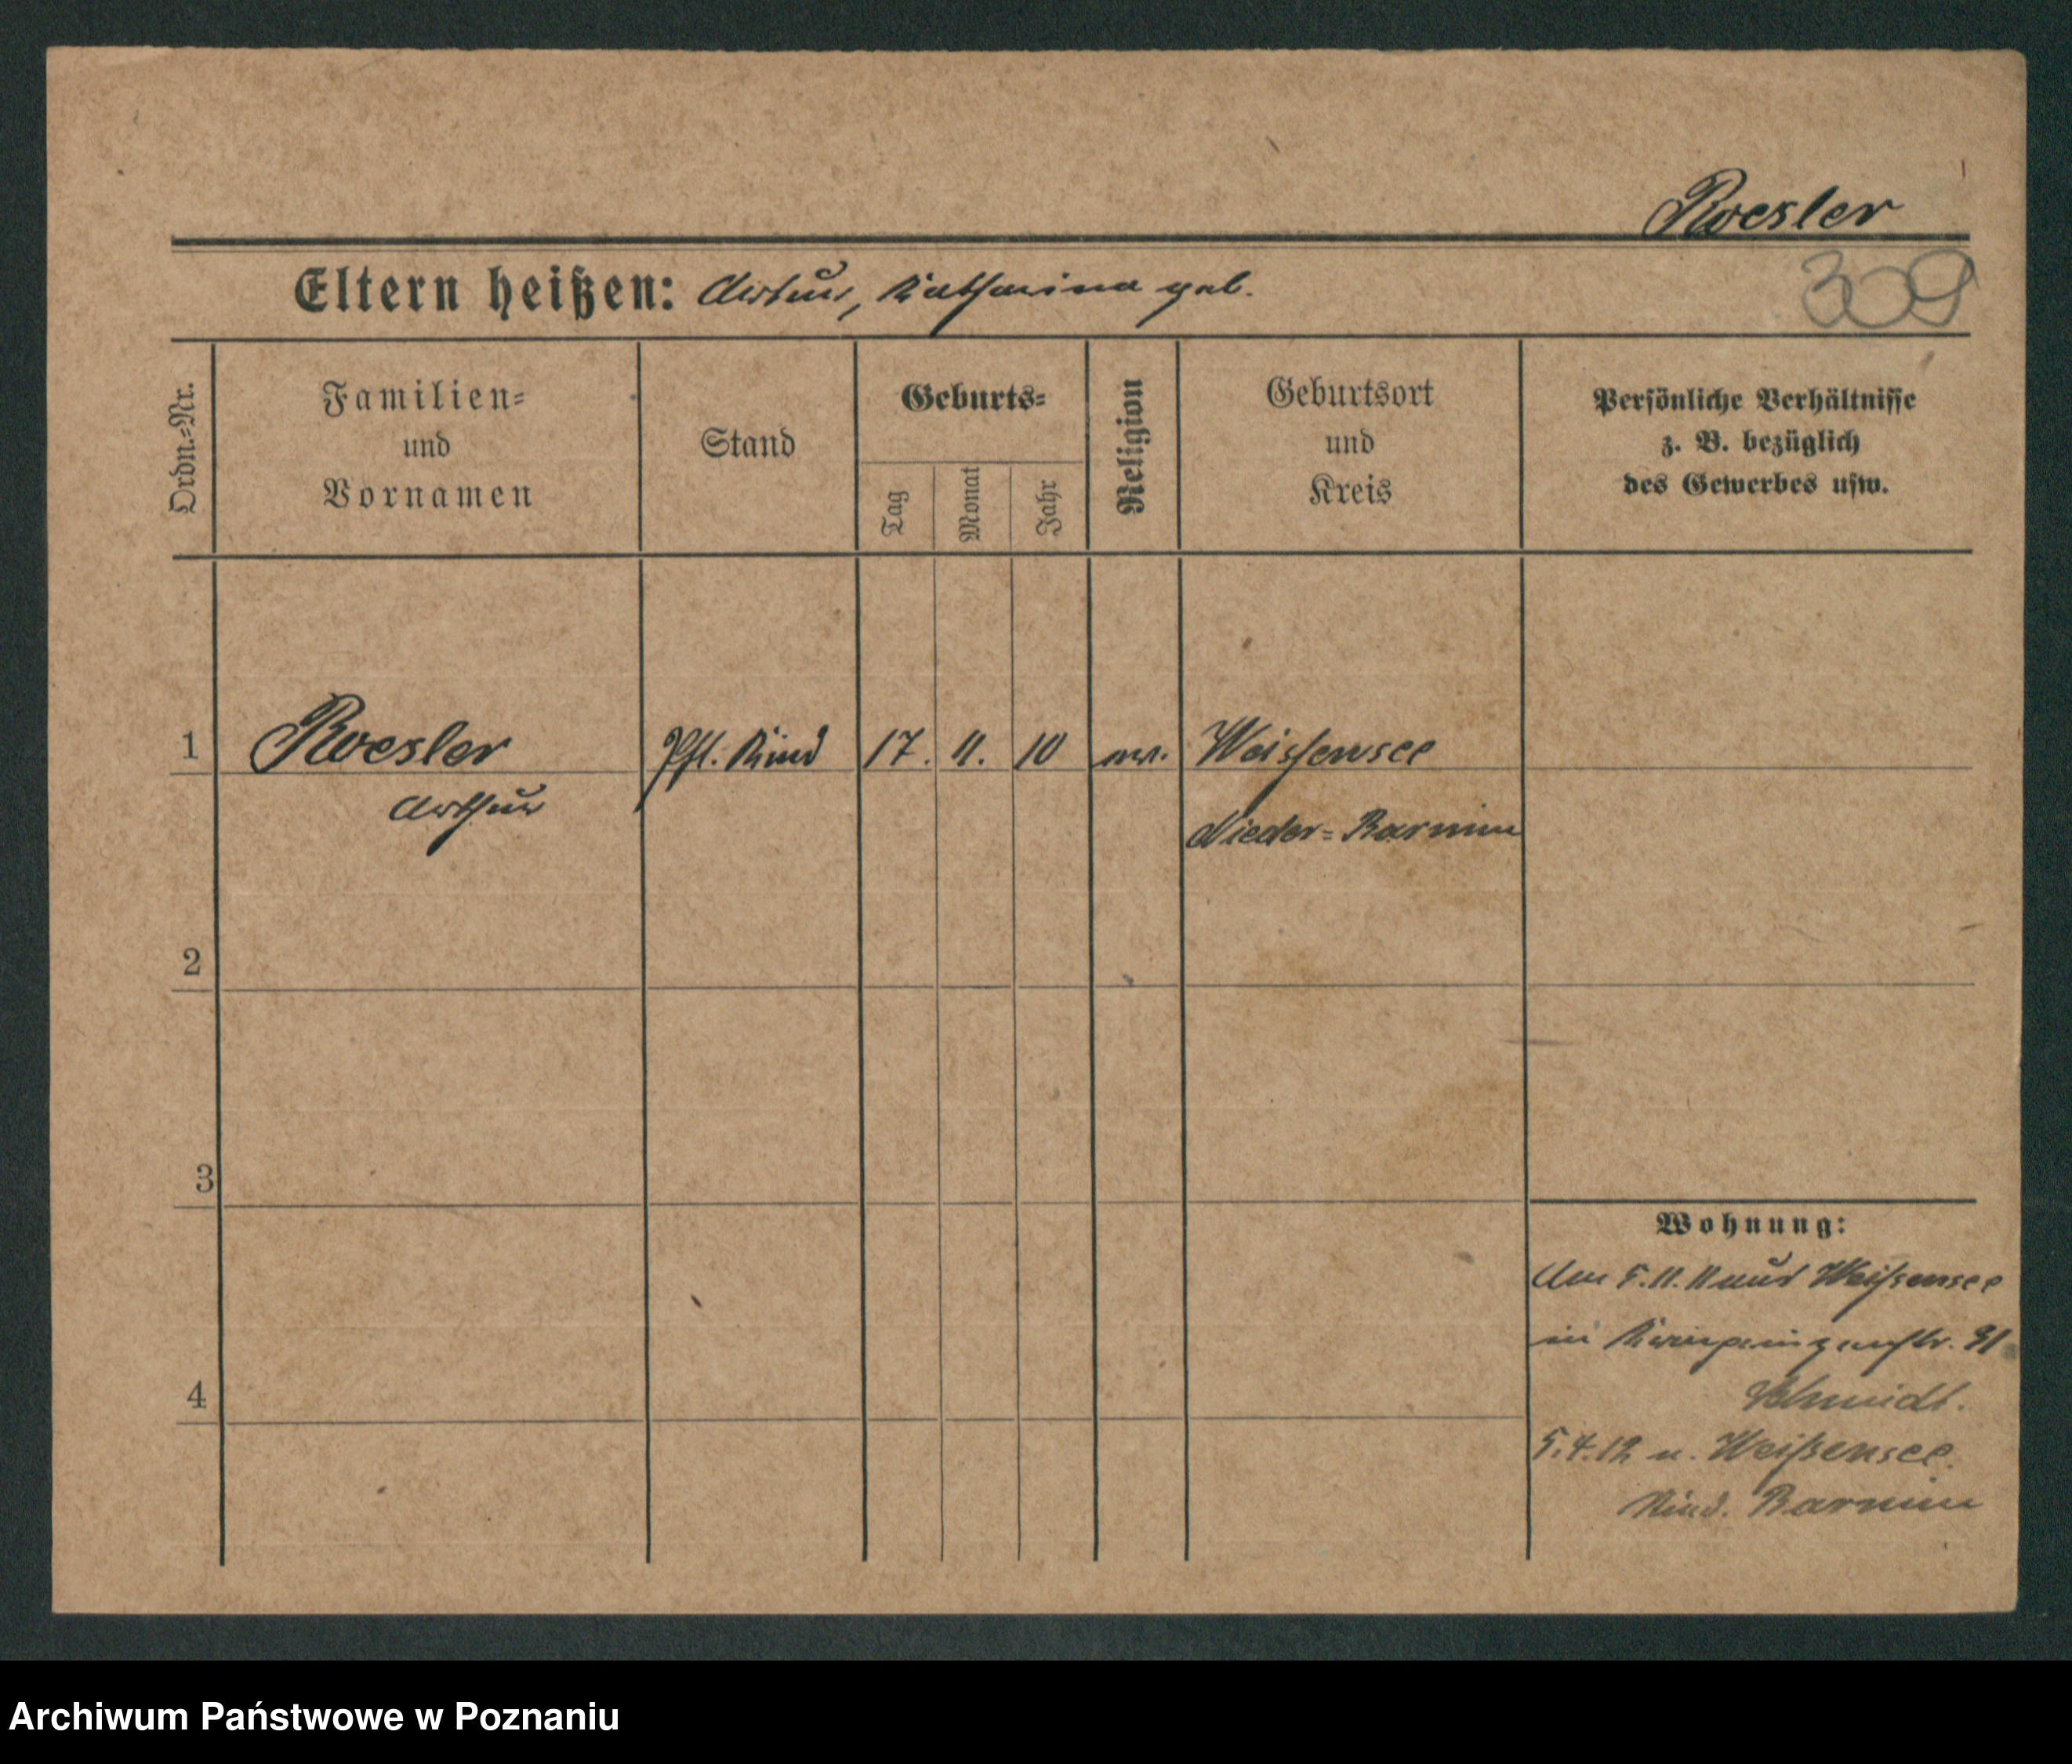 Roesler
309
Eltern heißen: Arthur, Katharina geb.
Ordn.=Nr.
Familien=
und
Vornamen
Stand
Geburts=
Tag
Monat
Jahr
Religion
Geburtsort
und
Kreis
Persönliche Verhältnisse
z. B. bezüglich
des Gewerbes usw.
1 Roesler Pfl. Kind 17. 11. 10 Weissensee
Arthur Nieder=Barnim
2
3
Wohnung:
5.11.11 Weißensee
in 31
4 Schmidt.
5.4.12 n. Weißensee
Barnim
Archiwum Państwowe w Poznaniu